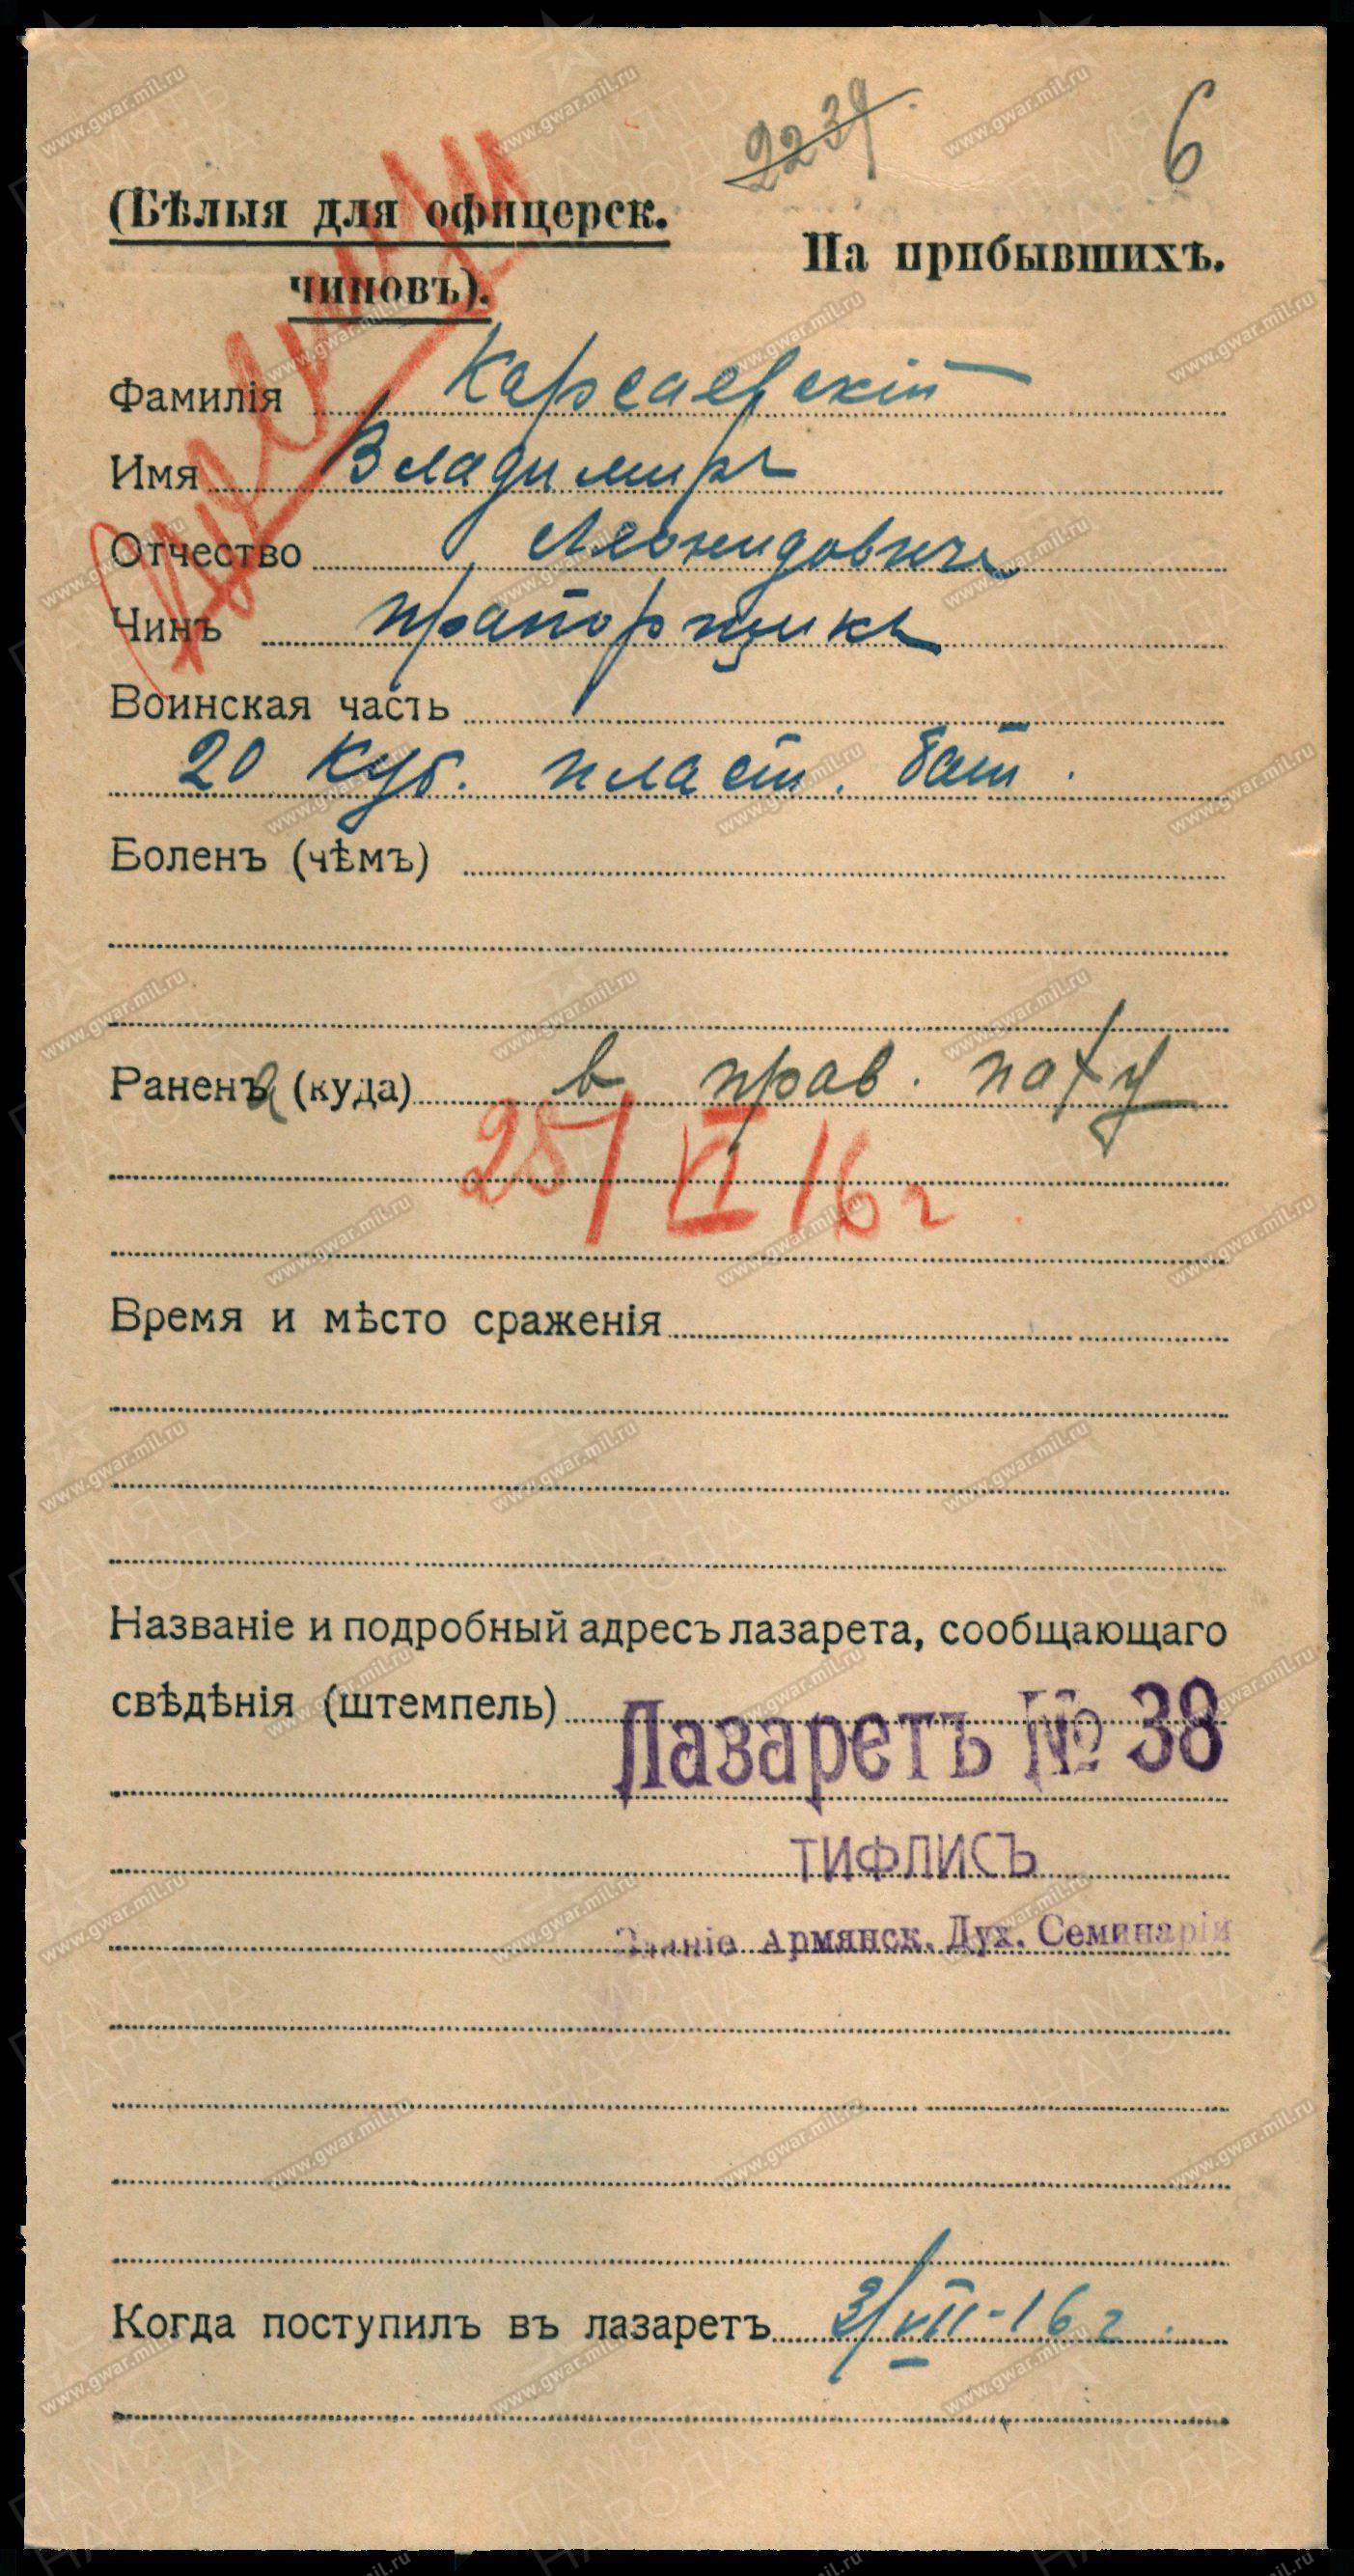 2239.
6
(Бѣлыя для офицерск.
чиновъ).
На прибывшихъ.
Фамилія Карсаевскій
Имя Владимиръ
Отчество Леонидовичъ
Чинъ прапорщикъ
Воинская часть
20 Куб. пласт. бат.
Боленъ (чѣмъ)
Раненъ (куда) в прав. паху
25/VI 16 г
Время и мѣсто сраженія
Названіе и подробный адресъ лазарета, сообщающаго
свѣдѣнія (штемпель)
Лазаретъ № 38
ТИФЛИСЪ
Зданіе Армянск. Дух. Семинаріи
Когда поступилъ въ лазаретъ 3/VII-16 г.